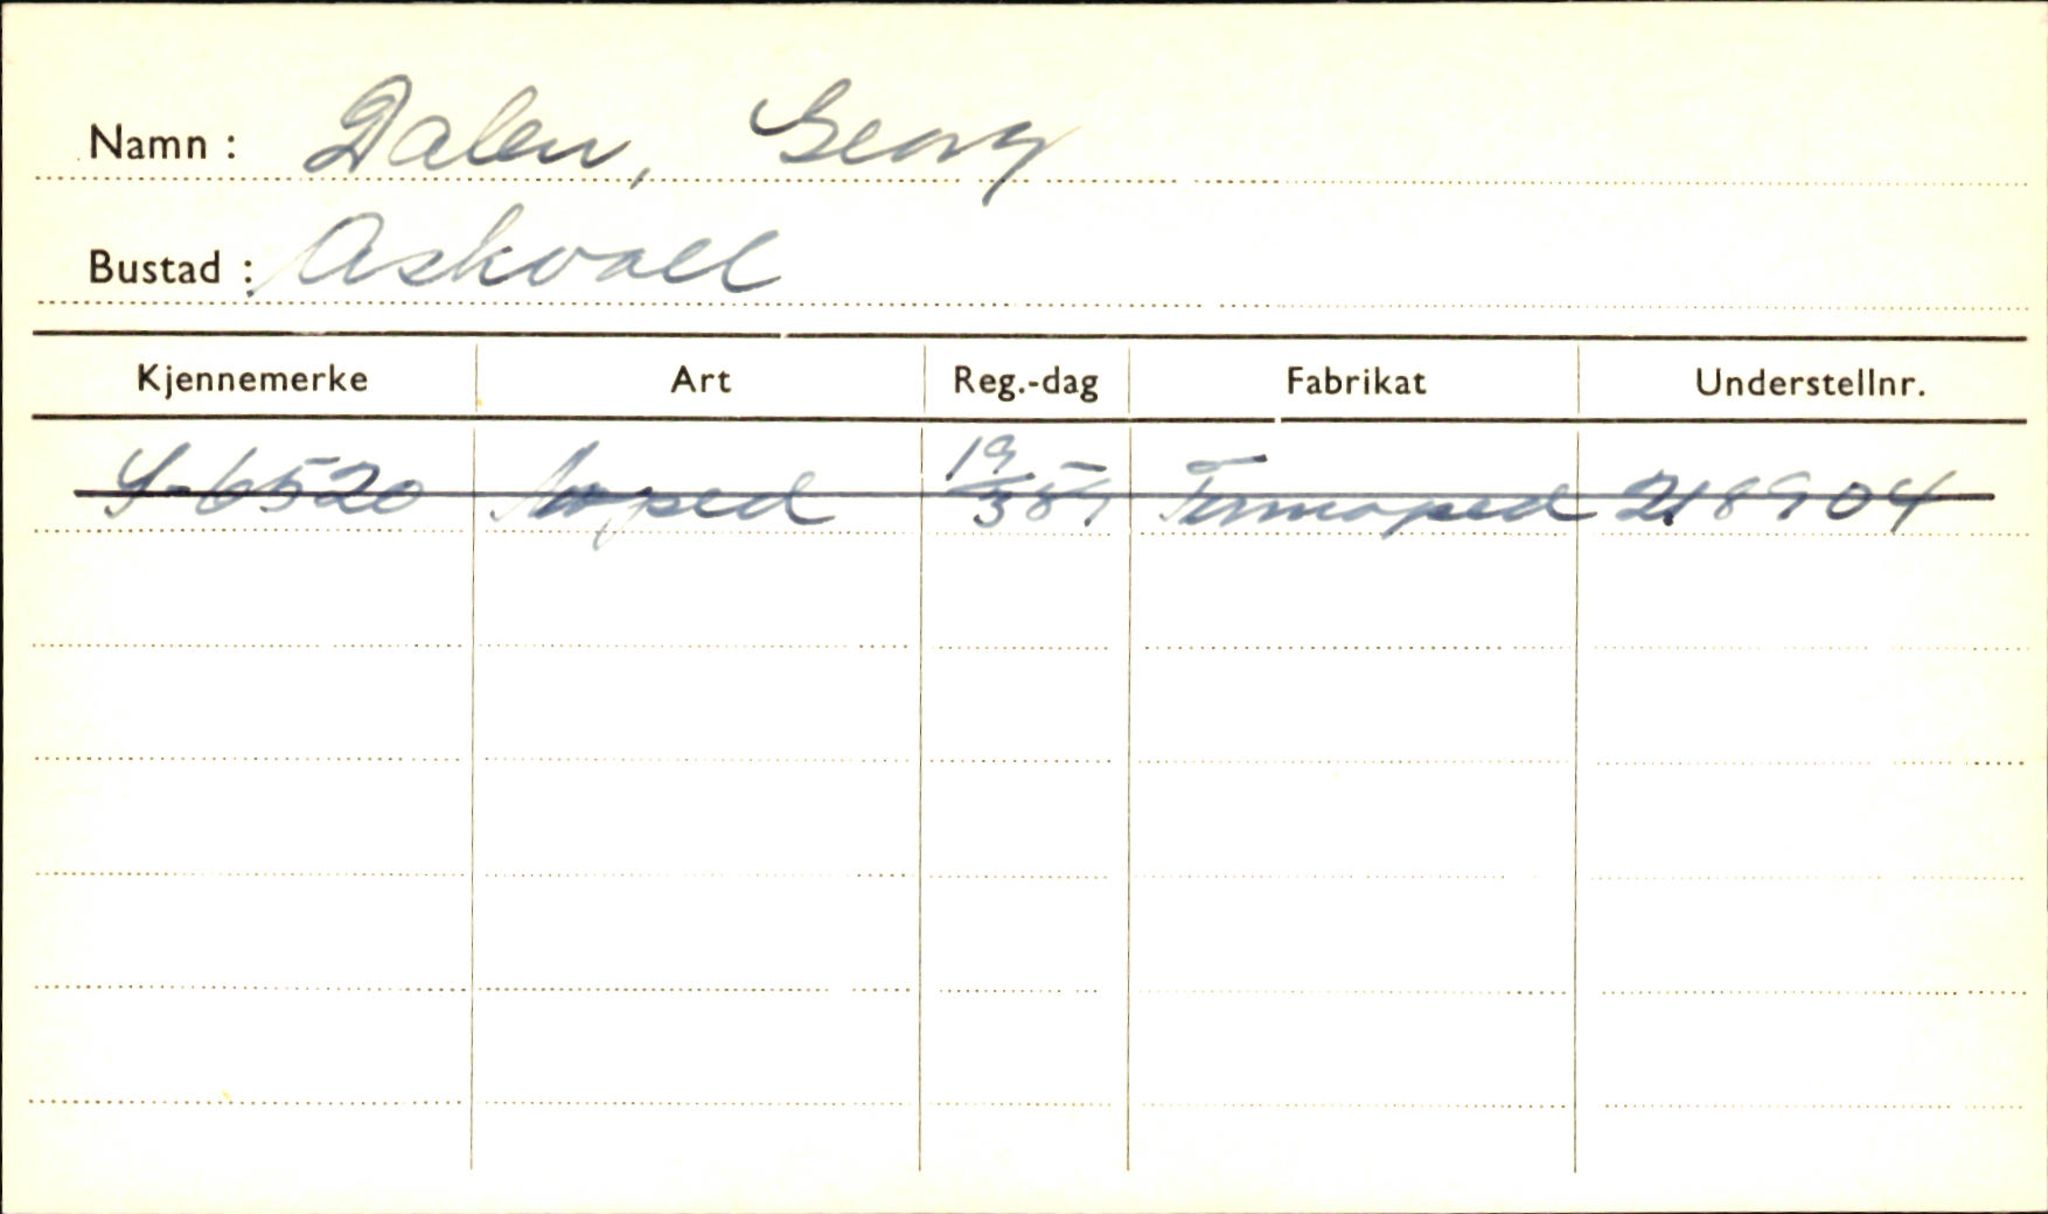 Namn : Dalen, Georg
Bustad : Askvoll
Kjennemerke Art Reg.-dag Fabrikat Understellnr.
S-6520 Moped 19/3 Termoped 218904